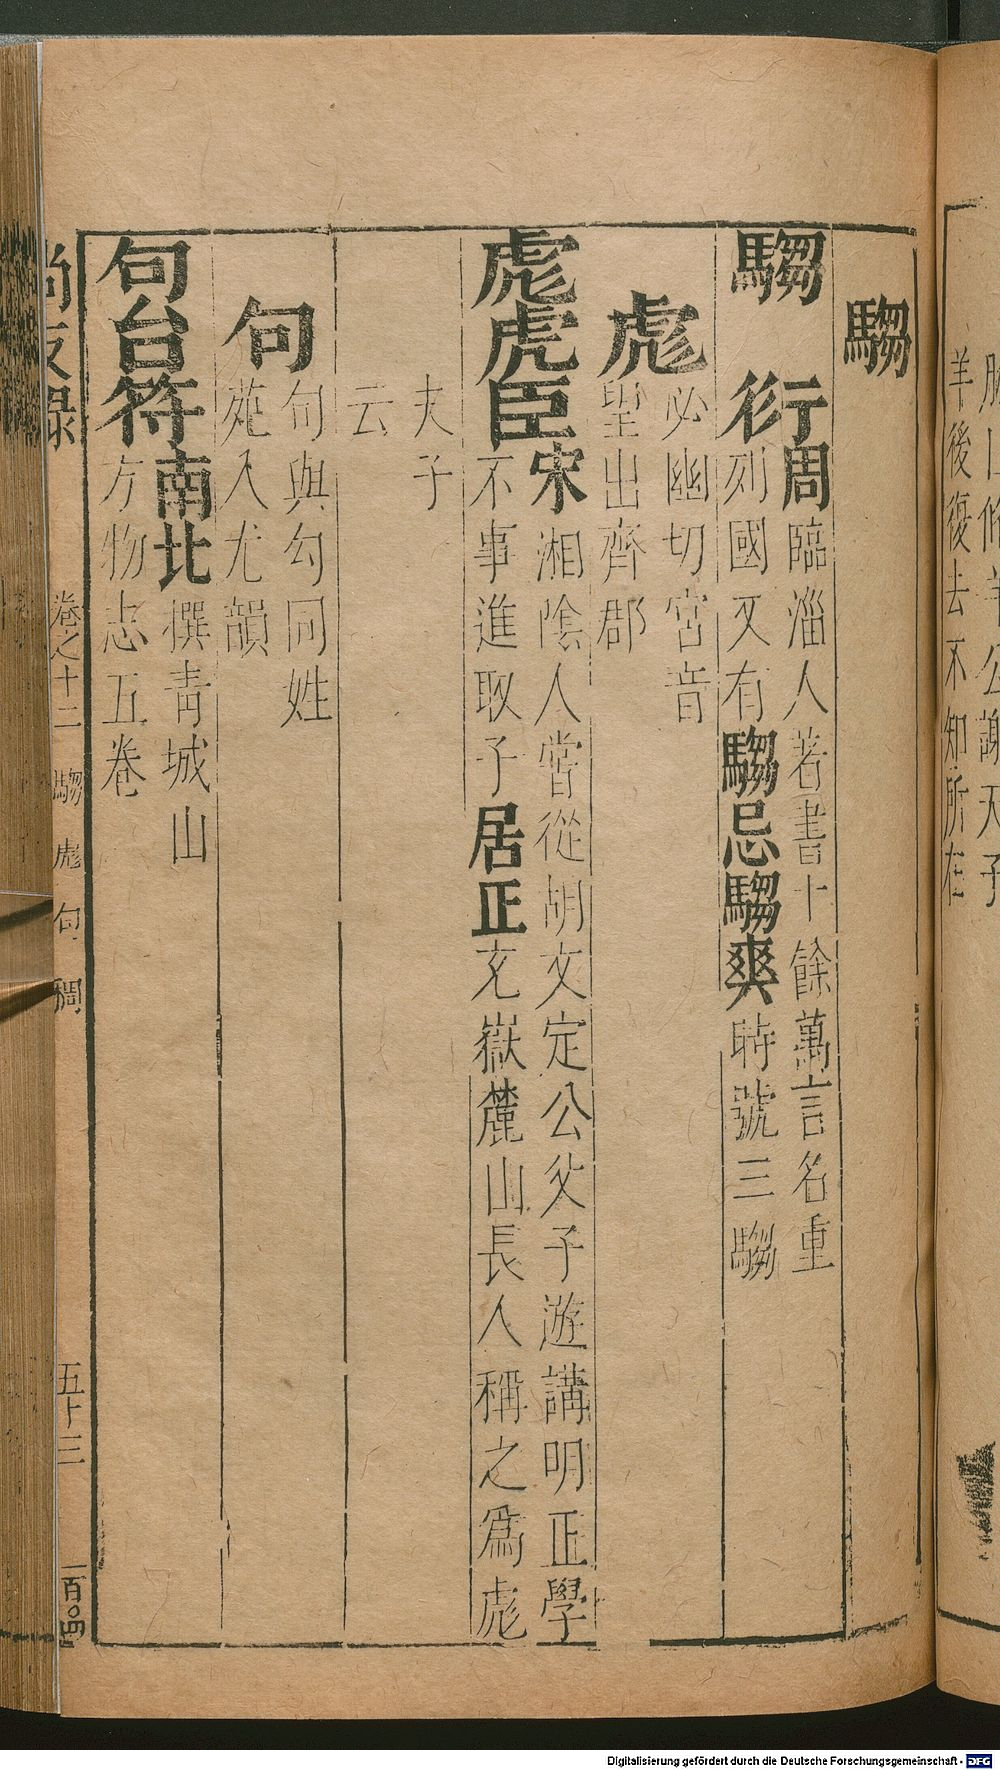 騶
騶衍周臨淄人著書十餘萬言名重
列國又有騶忌騶奭時號三騶
彪
必幽切宮音
望出齊郡
彪虎臣宋湘陰人嘗從胡文定公父子遊講明正學
不事進取子居正充嶽麓山長人稱之爲彪
夫子
云
句
句與勾同姓
苑入尤韻
句台符南北撰青城山
方物志五卷
尚友錄
卷之十二
騶
彪
句
稠
五十三
一百〇四
羊後復去不知所在
Digitalisierung gefördert durch die Deutsche Forschungsgemeinschaft - DFG